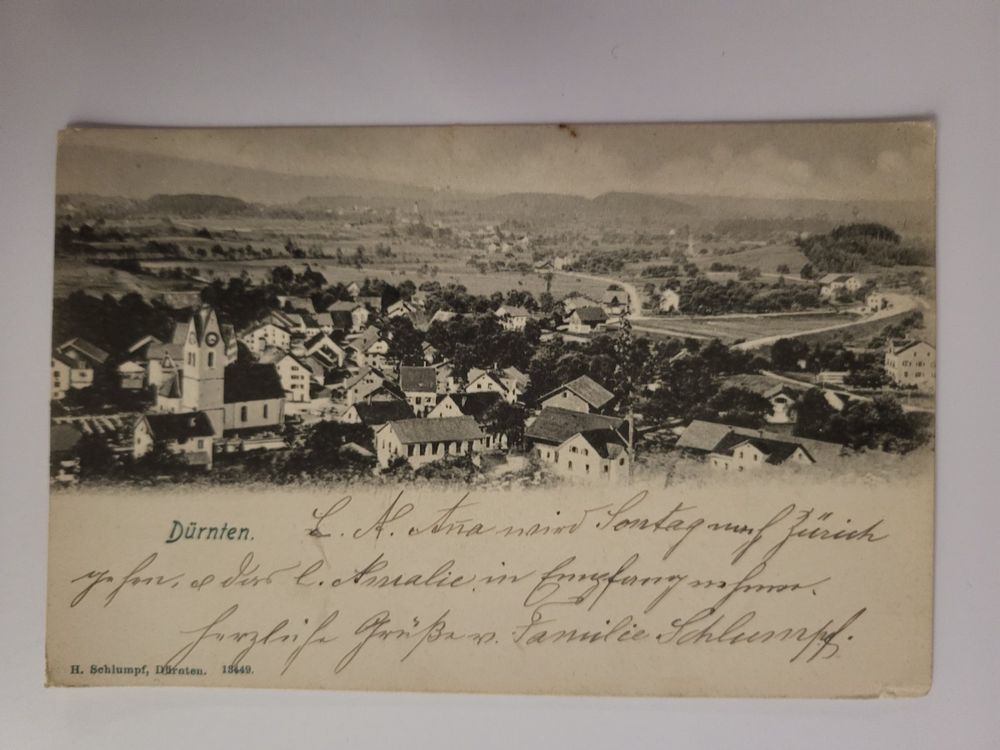 Dürnten.
L. A. Ana wird Sontag nach Zürich
gehen, & das l. Amalie in Empfang nehmen.
herzliche Grüße v. Familie Schlumpf.
H. Schlumpf, Dürnten. 13449.